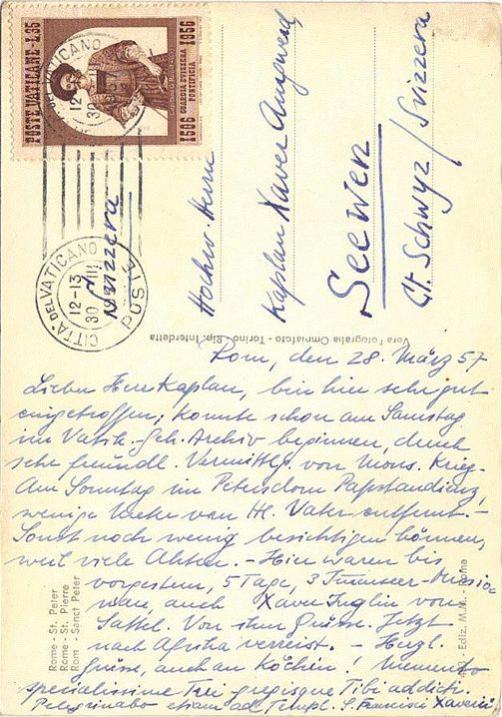 POSTE VATICANE - L.35
1506 GUARDIA SVIZZERA PONTIFICIA 1956
CITTA' DEL VATICANO
12-13
30 III
POSTE
Svizzera
Hochw. Herrn
Kaplan Xaver
Seewen
Ct. Schwyz / Svizzera
Vera Fotografia Omniafoto - Torino - Rip. Interdetta
Rom, den 28. März 57
Lieber Herr Kaplan, bin hier sehr gut
eingetroffen; konnte schon am Samstag
im Vatik. Geh. Archiv beginnen, dank
sehr freundl. Vermittlg. von Mons. Krieg.
Am Sonntag im Petersdom Papstaudienz,
wenige Meter von Hl. Vater entfernt. -
Sonst noch wenig besichtigen können,
weil viele Akten. - Hier waren bis
vorgestern, 5 Tage, 3 Immenseer-Missio
nare, auch Xaver Inglin von
Sattel. Von ihm Grüsse. Jetzt
nach Afrika verreist. - Herzl.
Grüsse, auch an Köchin! Memento
specialissime Trei gregisque Tibi addicti.
Peregrinabo etiam ad Templ. S. Francisci Xaverii
Rome - St. Peter
Rome - St. Pierre
Rom - Sanct Peter
Ediz.